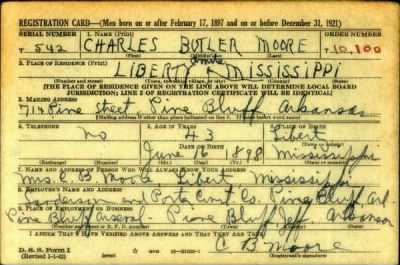 REGISTRATION CARD—(Men born on or after February 17, 1897 and on or before December 31, 1921)
SERIAL NUMBER 1. NAME (Print) ORDER NUMBER
T 542 CHARLES BUTLER MOORE T10,100
(First) (Middle) (Last)
2. PLACE OF RESIDENCE (Print)
LIBERTY Amite MISSISSIPPI
(Number and street) (Town, township, village, or city) (County) (State)
[THE PLACE OF RESIDENCE GIVEN ON THE LINE ABOVE WILL DETERMINE LOCAL BOARD
JURISDICTION; LINE 2 OF REGISTRATION CERTIFICATE WILL BE IDENTICAL]
3. MAILING ADDRESS
714 Pine Street Pine Bluff Arkansas
[Mailing address if other than place indicated on line 2. If same insert word same]
4. TELEPHONE 5. AGE IN YEARS 6. PLACE OF BIRTH
no 43 Libert
DATE OF BIRTH
June 16 1898 Mississippi
(Exchange) (Number) (Mo.) (Day) (Yr.) (State or country)
7. NAME AND ADDRESS OF PERSON WHO WILL ALWAYS KNOW YOUR ADDRESS
Mrs. C B Moore Libert Mississippi
8. EMPLOYER'S NAME AND ADDRESS
Sanderson and Porter Const. Co. Pine Bluff Ark
9. PLACE OF EMPLOYMENT OR BUSINESS
Pine Bluff Arsenal - Pine Bluff Jeff Arkansas
(Number and street or R. F. D. number) (Town) (County) (State)
I AFFIRM THAT I HAVE VERIFIED ABOVE ANSWERS AND THAT THEY ARE TRUE.
D. S. S. Form 1
(Revised 1-1-42) C B Moore
(Registrant's signature)